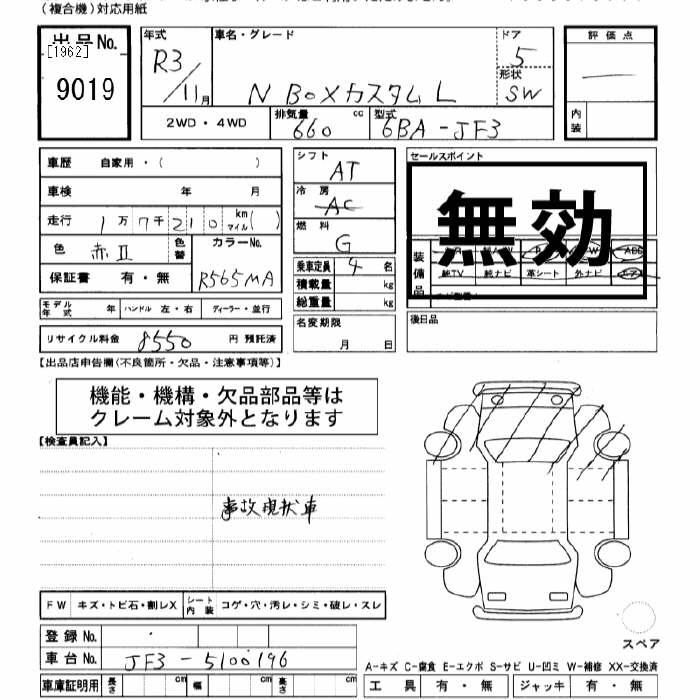 (複合機)対応用紙
出品No.
[1962]
9019
年式
R3/11月
車名・グレード
N BOXカスタム L
ドア
5
形状
SW
評価点
内装
2WD・4WD
排気量
660 cc
型式
6BA-JF3
車歴 自家用・( )
車検 年 月
走行 1万7千210 km マイル( )
色 赤II 色替
カラーNo.
R565MA
保証書 有・無
モデル年式 年 ハンドル 左・右 ディーラー・並行
リサイクル料金 8550 円 預託済
シフト
AT
冷房
AC
燃料
G
乗車定員 4 名
積載量 kg
総重量 kg
名変期限
月 日
セールスポイント
無効
装備品
純TV 純ナビ 革シート 外ナビ エアB
後日品
【出品店申告欄(不良箇所・欠品・注意事項等)】
機能・機構・欠品部品等は
クレーム対象外となります
【検査員記入】
事故現状車
FW キズ・トビ石・割レX シート内装 コゲ・穴・汚レ・シミ・破レ・スレ
登録No.
車台No. JF3-5100196
車庫証明用 長さ cm 幅 cm 高さ cm
スペア
A-キズ C-腐食 E-エクボ S-サビ U-凹ミ W-補修 XX-交換済
工具 有・無 ジャッキ 有・無